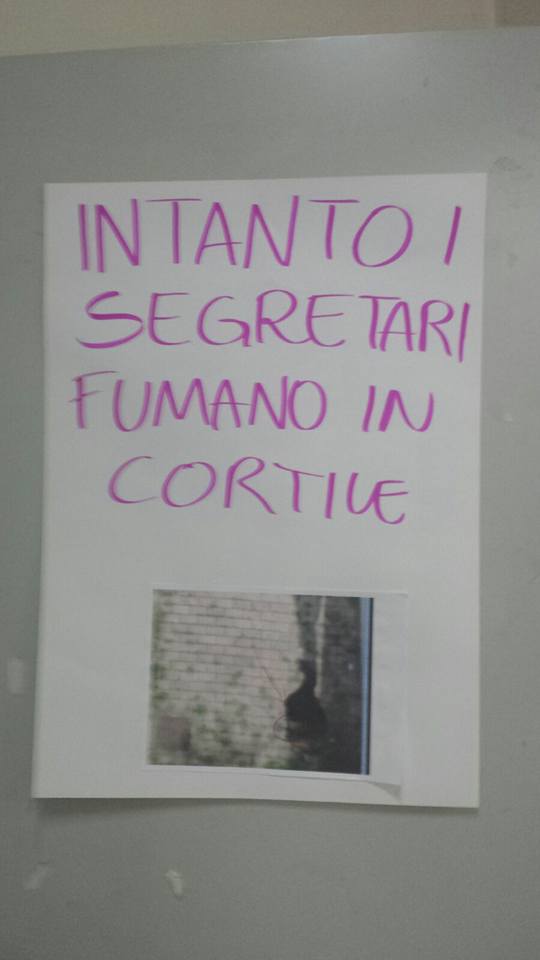 INTANTO I
SEGRETARI
FUMANO IN
CORTILE